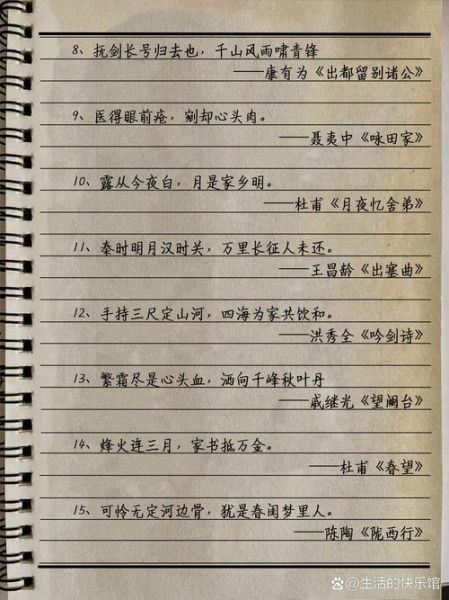 8、抚剑长号归去也，千山风雨啸青锋
——康有为《出都留别诸公》
9、医得眼前疮，剜却心头肉。
——聂夷中《咏田家》
10、露从今夜白，月是家乡明。
——杜甫《月夜忆舍弟》
11、秦时明月汉时关，万里长征人未还。
——王昌龄《出塞曲》
12、手持三尺定山河，四海为家共饮和。
——洪秀全《吟剑诗》
13、繁霜尽是心头血，洒向千峰秋叶丹
——戚继光《望阙台》
14、烽火连三月，家书抵万金。
——杜甫《春望》
15、可怜无定河边骨，犹是春闺梦里人。
——陈陶《陇西行》
@生活的快乐馆